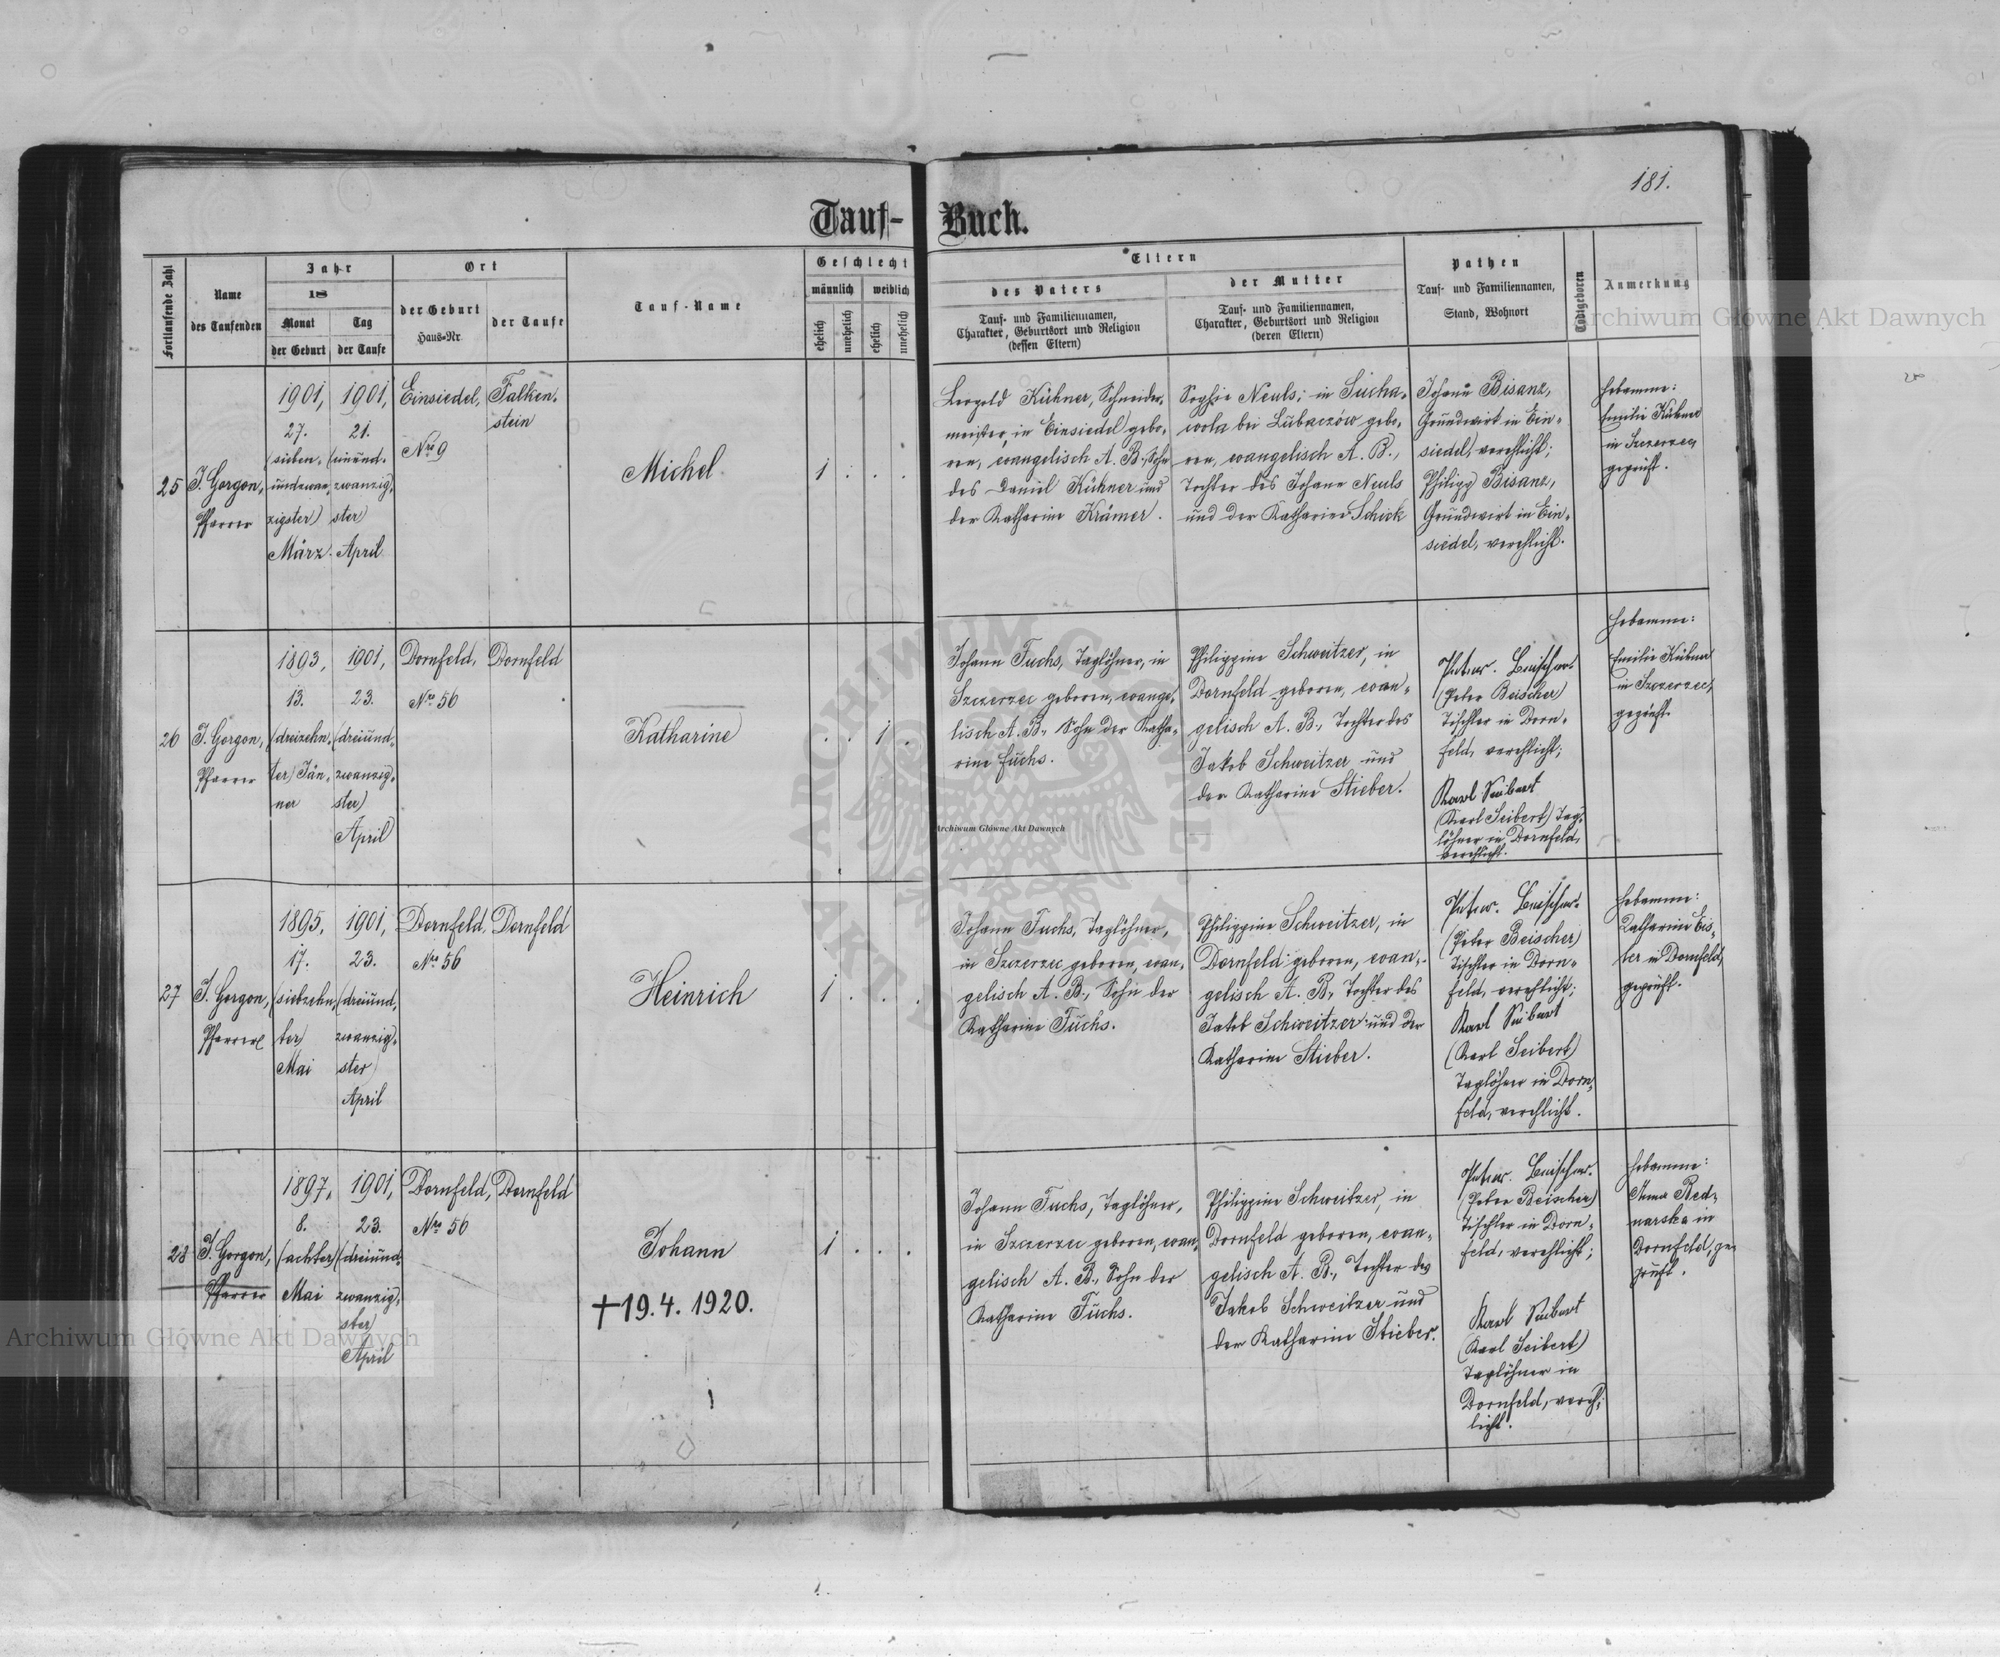 181.
Tauf-Buch.
Fortlaufende Zahl
Name
des Taufenden
Jahr
18
Monat
der Geburt
Tag
der Taufe
Ort
der Geburt
Haus-Nr.
der Taufe
Tauf-Name
Geschlecht
männlich
weiblich
ehelich
unehelich
ehelich
unehelich
Eltern
des Vaters
Tauf- und Familiennamen,
Charakter, Geburtsort und Religion
(dessen Eltern)
der Mutter
Tauf- und Familiennamen,
Charakter, Geburtsort und Religion
(deren Eltern)
Pathen
Tauf- und Familiennamen,
Stand, Wohnort
Todtgeboren
Anmerkung
25
J. Gorgon,
Pfarrer
1901,
27.
(sieben-
undzwan-
zigster)
März
1901,
21.
(einund-
zwanzig-
ster)
April
Einsiedel,
Nro 9
Falken-
stein
Michel
1
Leopold Kühner, Schneider-
meister, in Einsiedel gebo-
ren, evangelisch A. B., Sohn
des Daniel Kühner und
der Katharine Krämer.
Sophie Neuls; in Sucha-
wola bei Lubaczów gebo-
ren, evangelisch A. B.,
Tochter des Johann Neuls
und der Katharine Schick
Johann Bisanz,
Grundwirt in Ein-
siedel, verehlicht;
Philipp Bisanz,
Grundwirt in Ein-
siedel, verehlicht.
Hebamme:
Emilie Kühner
in Szczerzec,
geprüft.
26
J. Gorgon,
Pfarrer
1893,
13.
(dreizehn-
ter) Jän-
ner
1901,
23.
(dreiund-
zwanzig-
ster)
April
Dornfeld,
Nro 56
Dornfeld
Katharine
1
Johann Fuchs, Taglöhner, in
Szczerzec geboren, evange-
lisch A. B., Sohn der Katha-
rine Fuchs.
Philippine Schweitzer, in
Dornfeld geboren, evan-
gelisch A. B., Tochter des
Jakob Schweitzer und
der Katharine Stieber.
Peter Beischer
(Peter Beischer)
Tischler in Dorn-
feld, verehlicht;
Karl Seibert
(Karl Seibert) Tag-
löhner in Dornfeld,
verehlicht.
Hebamme:
Emilie Kühner
in Szczerzec,
geprüft.
27
J. Gorgon,
Pfarrer
1895,
17.
(siebzehn-
ter)
Mai
1901,
23.
(dreiund-
zwanzig-
ster)
April
Dornfeld,
Nro 56
Dornfeld
Heinrich
1
Johann Fuchs, Taglöhner,
in Szczerzec geboren, evan-
gelisch A. B., Sohn der
Katharine Fuchs.
Philippine Schweitzer, in
Dornfeld geboren, evan-
gelisch A. B., Tochter des
Jakob Schweitzer und der
Katharine Stieber.
Peter Beischer
(Peter Beischer)
Tischler in Dorn-
feld, verehlicht;
Karl Seibert
(Karl Seibert)
Taglöhner in Dorn-
feld, verehlicht.
Hebamme:
Katharine
in Dornfeld,
geprüft.
28
J. Gorgon,
Pfarrer
1897,
8.
(achter)
Mai
1901,
23.
(dreiund-
zwanzig-
ster)
April
Dornfeld,
Nro 56
Dornfeld
Johann
†19.4. 1920.
1
Johann Fuchs, Taglöhner,
in Szczerzec geboren, evan-
gelisch A. B., Sohn der
Katharine Fuchs.
Philippine Schweitzer, in
Dornfeld geboren, evan-
gelisch A. B., Tochter des
Jakob Schweitzer und
der Katharine Stieber.
Peter Beischer
(Peter Beischer)
Tischler in Dorn-
feld, verehlicht;
Karl Seibert
(Karl Seibert)
Taglöhner in
Dornfeld, vereh-
licht.
Hebamme:
Anna Bed-
narska in
Dornfeld, ge-
prüft.
Archiwum Główne Akt Dawnych
Archiwum Główne Akt Dawnych
Archiwum Główne Akt Dawnych